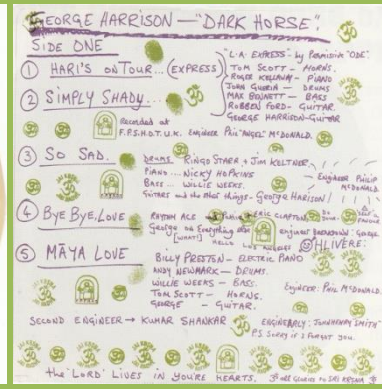 GEORGE HARRISON — "DARK HORSE".
SIDE ONE
① HARI'S ON TOUR... (EXPRESS)
"L.A. EXPRESS" - by Permission "ODE".
TOM SCOTT - HORNS.
ROGER KELLAWAY - PIANO
JOHN GUERIN - DRUMS
MAX BENNETT - BASS
ROBBEN FORD - GUITAR.
GEORGE HARRISON - GUITAR
② SIMPLY SHADY...
Recorded at
F.P.S.H.O.T. U.K. Engineer Phil "ANGEL" McDONALD.
③ SO SAD.
DRUMS RINGO STARR + JIM KELTNER.
PIANO ... NICKY HOPKINS
BASS .. WILLIE WEEKS.
GUITARS and the other things - George HARISON
Engineer PHILIP
McDONALD.
④ BYE BYE, LOVE
RHYTHM ACE
ERIC CLAPTON
George on Everything else
[WHAT!] HELLO LOS ANGELES
OHLIVERE:
⑤ MĀYA LOVE
BILLY PRESTON - ELECTRIC PIANO
ANDY NEWMARK - DRUMS.
WILLIE WEEKS - BASS.
TOM SCOTT - HORNS.
GEORGE - GUITAR.
Engineer: PHIL McDONALD.
SECOND ENGINEER → KUMAR SHANKAR
ENGINEEARLY: "JOHNHENRY SMITH"
P.S SORRY IF I FORGOT YOU.
the 'LORD' LIVES IN YOU'RE HEARTS.
ALL GLORIES TO SRI KRSNA